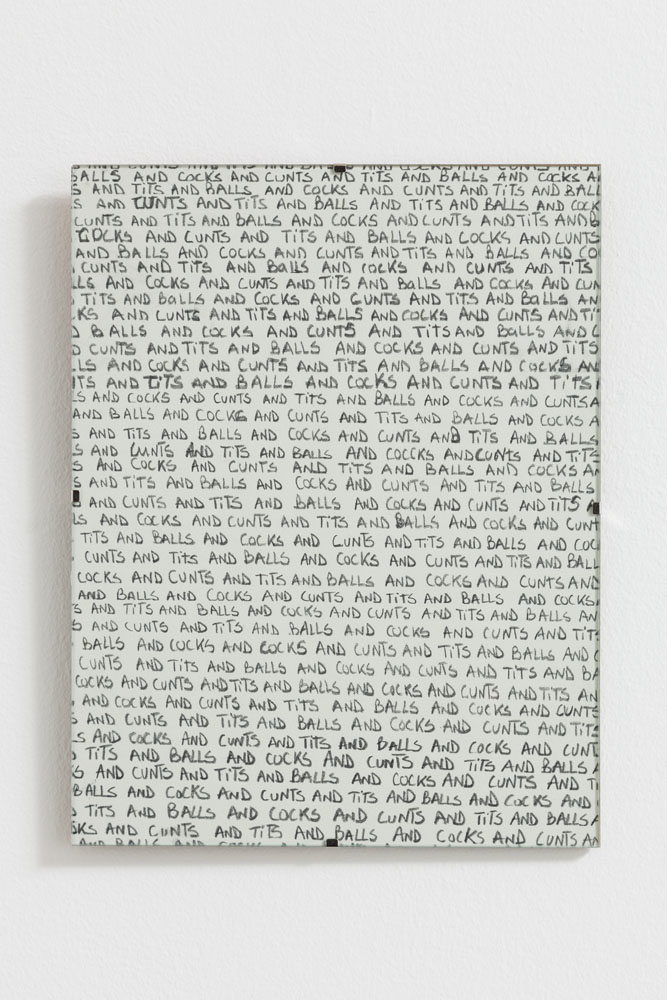 BALLS AND COCKS AND CUNTS AND TITS AND BALLS AND COCKS A
S AND TITS AND BALLS AND COCKS AND CUNTS AND TITS AND BALL
S AND CUNTS AND TITS AND BALLS AND TITS AND BALLS AND COCK
CUNTS AND TITS AND BALLS AND COCKS AND CUNTS AND TITS AND B
COCKS AND CUNTS AND TITS AND BALLS AND COCKS AND CUNTS
AND BALLS AND COCKS AND CUNTS AND TITS AND BALLS AND CO
CUNTS AND TITS AND BALLS AND COCKS AND CUNTS AND TITS
LLS AND COCKS AND CUNTS AND TITS AND BALLS AND COCKS AND CUN
TITS AND BALLS AND COCKS AND CUNTS AND TITS AND BALLS AN
KS AND CUNTS AND TITS AND BALLS AND COCKS AND CUNTS AND TI
D BALLS AND COCKS AND CUNTS AND TITS AND BALLS AND C
D CUNTS AND TITS AND BALLS AND COCKS AND CUNTS AND TITS
LS AND COCKS AND CUNTS AND TITS AND BALLS AND COCKS AN
ITS AND TITS AND BALLS AND COCKS AND CUNTS AND TITS
LS AND COCKS AND CUNTS AND TITS AND BALLS AND COCKS AND CUNTS A
AND BALLS AND COCKS AND CUNTS AND TITS AND BALLS AND COCKS A
S AND TITS AND BALLS AND COCKS AND CUNTS AND TITS AND BALLS
S AND CUNTS AND TITS AND BALLS AND COCCKS AND CUNTS AND TITS
S AND COCKS AND CUNTS AND TITS AND BALLS AND COCKS AN
S AND TITS AND BALLS AND COCKS AND CUNTS AND TITS AND BALLS
AND CUNTS AND TITS AND BALLS AND COCKS AND CUNTS AND TITS A
LS AND COCKS AND CUNTS AND TITS AND BALLS AND COCKS AND CUNT
TITS AND BALLS AND COCKS AND CUNTS AND TITS AND BALLS AND COC
CUNTS AND TITS AND BALLS AND COCKS AND CUNTS AND TITS AND BALL
COCKS AND CUNTS AND TITS AND BALLS AND COCKS AND CUNTS AND
AND BALLS AND COCKS AND CUNTS AND TITS AND BALLS AND COCKS
S AND TITS AND BALLS AND COCKS AND CUNTS AND TITS AND BALLS AN
S AND CUNTS AND TITS AND BALLS AND COCKS AND CUNTS AND TIT
BALLS AND COCKS AND COCKS AND CUNTS AND TITS AND BALLS AND C
CUNTS AND TITS AND BALLS AND COCKS AND CUNTS AND TITS AND BA
COCKS AND CUNTS AND TITS AND BALLS AND COCKS AND CUNTS AND TITS AN
AND COCKS AND CUNTS AND TITS AND BALLS AND COCKS AND CUNTS
S AND CUNTS AND TITS AND BALLS AND COCKS AND CUNTS AND TITS
S AND COCKS AND CUNTS AND TITS AND BALLS AND COCKS AND CUNT
TITS AND BALLS AND COCKS AND CUNTS AND TITS AND BALLS A
S AND CUNTS AND TITS AND BALLS AND COCKS AND CUNTS AND TI
BALLS AND COCKS AND CUNTS AND TITS AND BALLS AND COCKS AND
TITS AND BALLS AND COCKS AND CUNTS AND TITS AND BALLS A
KS AND CUNTS AND TITS AND BALLS AND COCKS AND CUNTS AN